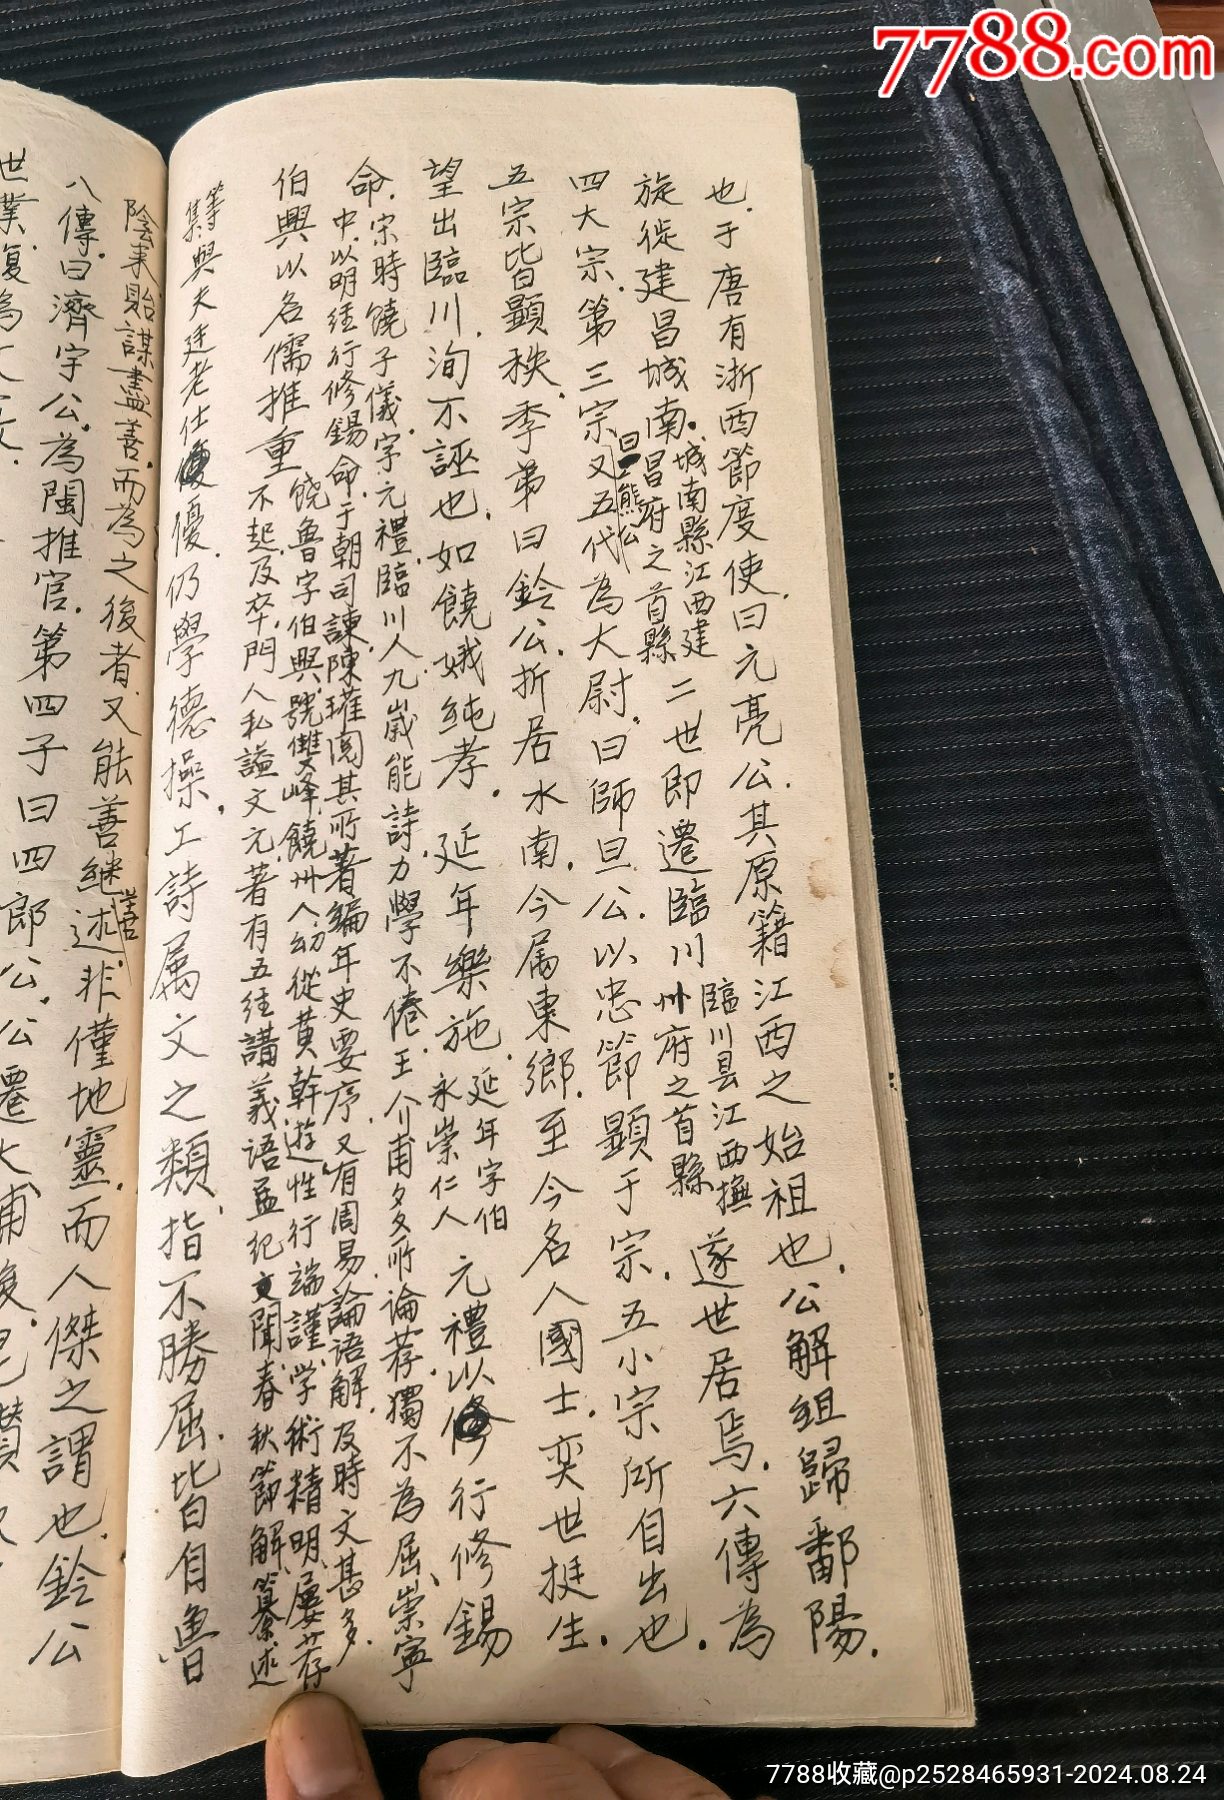 7788.com
也.于唐有浙西節度使.曰元亮公.其原籍江西之始祖也.公解组歸鄱陽.
旋徙建昌城南.城南縣江西建昌府之首縣二世即遷臨川臨川县江西撫州府之首縣遂世居焉.六傳為
四大宗.第三宗曰熊公又五代為大尉.曰師旦公.以忠節顯于宗.五小宗所自出也.
五宗皆顯秩.季弟曰鈴公.折居水南.今屬東鄉.至今名人國士.奕世挺生.
望出臨川.洵不誣也.如饒娥純孝.延年樂施.延年字伯永崇仁人元禮以行修錫
命.宋時饒子儀.字元禮.臨川人九歲能詩.力學不倦.王介甫多所論荐.獨不為屈.崇寧
中.以明经行修錫命.于朝司諫陳瓘閱其所著編年史要序.又有周易.論语解.及時文甚多.
伯輿以名儒推重饒魯字伯輿.號雙峰.饒州人幼從黄幹遊.性行端謹.学術精明.屢荐
不起.及卒.門人私謚文元.著有五经講義语孟纪聞.春秋節解.纂述
等集與夫廷老仕優.仍學德操.工詩屬文之類.指不勝屈.皆自魯
陰来貽謀盡善.而為之後者.又能善継善述.非僅地靈.而人傑之謂也.鈴公
八傳.曰濟宇公.為閩推官.第四子曰四郎公.公遷大埔
世業.復為
7788收藏@p2528465931-2024.08.24